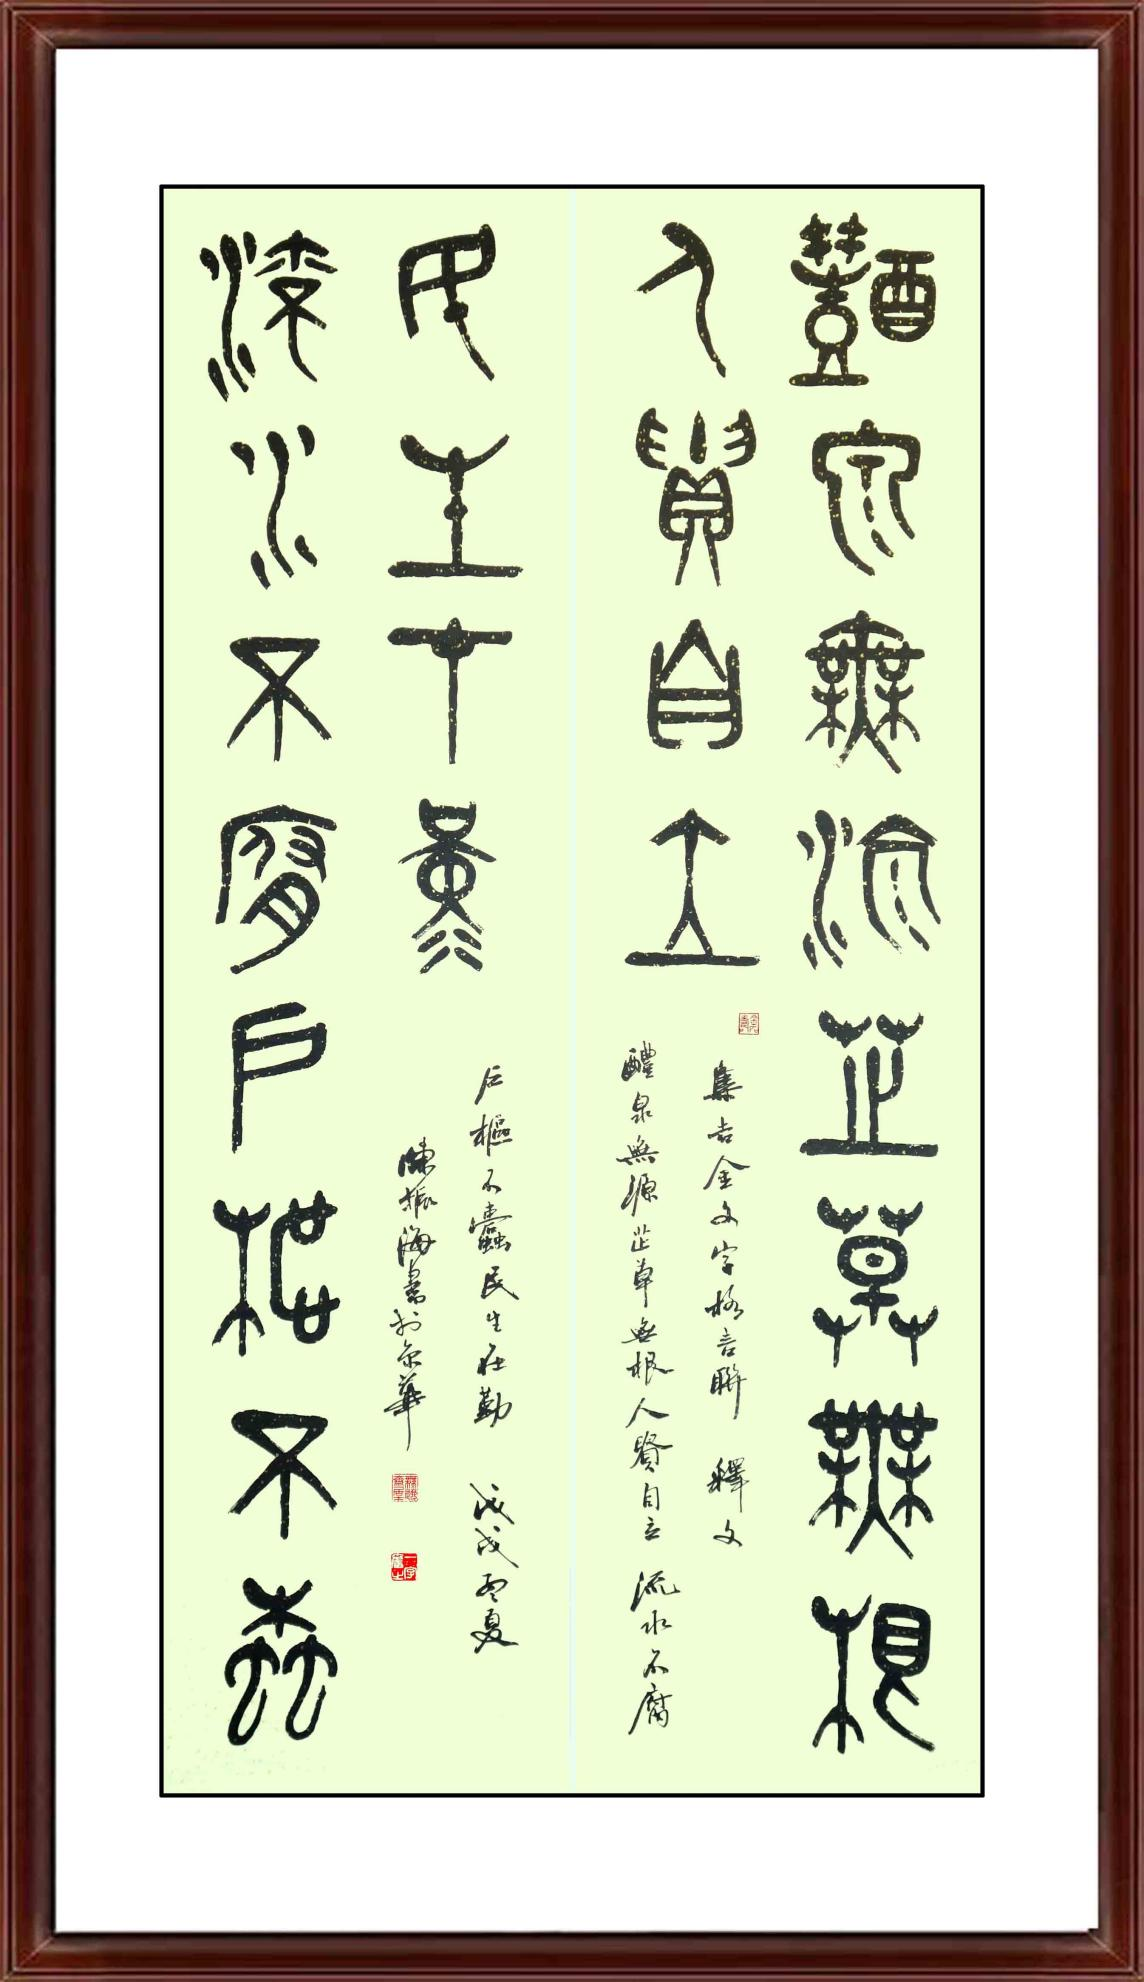 醴泉無源芷草無根
人賢自立
集吉金文字格言聯 釋文
醴泉無源芷草無根人賢自立 流水不腐
流水不腐戶樞不蠹
民生在勤
戶樞不蠹民生在勤 戊戌夏
陳振海書於京華